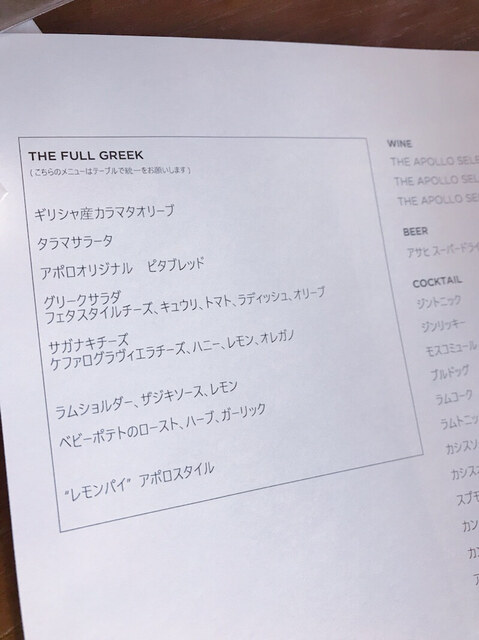 THE FULL GREEK
(こちらのメニューはテーブルで統一をお願いします)
ギリシャ産カラマタオリーブ
タラマサラータ
アポロオリジナル ピタブレッド
グリークサラダ
フェタスタイルチーズ、キュウリ、トマト、ラディッシュ、オリーブ
サガナキチーズ
ケファログラヴィエラチーズ、ハニー、レモン、オレガノ
ラムショルダー、ザジキソース、レモン
ベビーポテトのロースト、ハーブ、ガーリック
"レモンパイ" アポロスタイル
WINE
THE APOLLO SELE
THE APOLLO SEL
THE APOLLO SE
BEER
アサヒ スーパードライ
COCKTAIL
ジントニック
ジンリッキー
モスコミュール
ブルドッグ
ラムコーク
ラムトニッ
カシスソ
カシス
スプモ
カン
カ